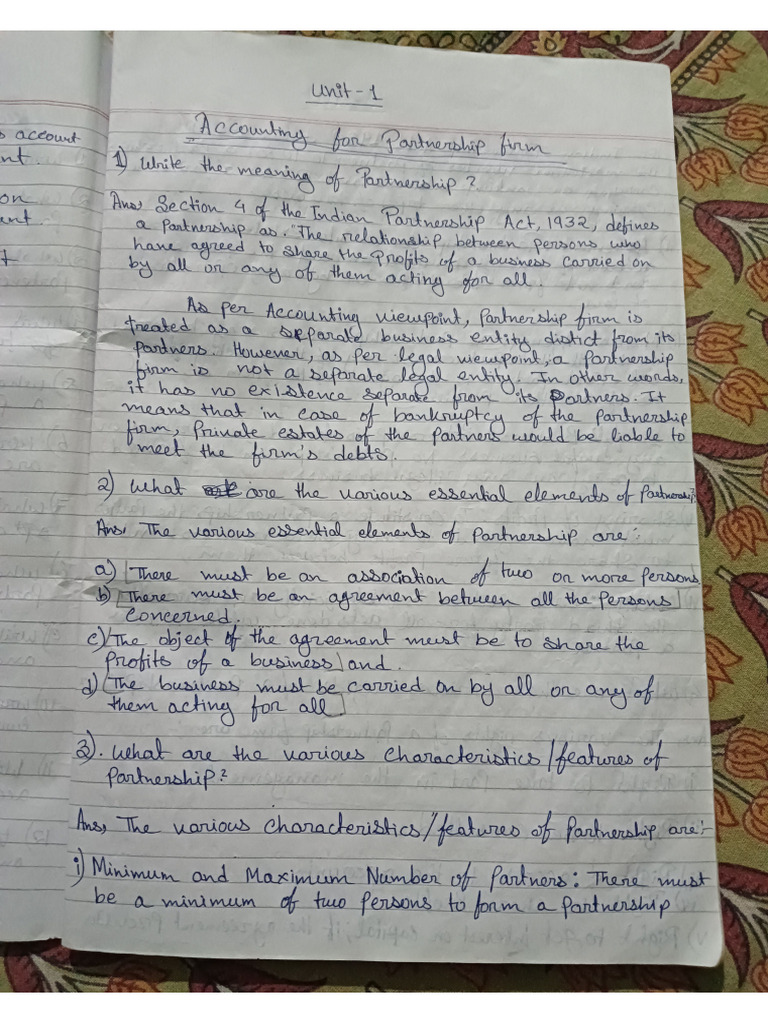 Unit-1
Accounting for Partnership firm
1) Write the meaning of Partnership?
Ans, Section 4 of the Indian Partnership Act, 1932, defines
a Partnership as. "The relationship between persons who
have agreed to share the Profits of a business carried on
by all or any of them acting for all.
As per Accounting viewpoint, Partnership firm is
treated as a separate business entity distict from its
partners. However, as per legal viewpoint, a Partnership
firm is not a separate legal entity. In other words,
it has no existence separate from its Partners. It
means that in case of bankruptcy of the partnership
firm, Private estates of the Partners would be liable to
meet the firm's debts.
2) What are the various essential elements of Partnership?
Ans, The various essential elements of Partnership are:
a) There must be an association of two or more Persons
b) There must be an agreement between all the Persons
concerned.
c) The object of the agreement must be to share the
Profits of a business and.
d) The business must be carried on by all or any of
them acting for all
3). What are the various characteristics/features of
Partnership?
Ans, The various characteristics/features of Partnership are:-
i) Minimum and Maximum Number of Partners: There must
be a minimum of two Persons to form a Partnership
account
nt.
on